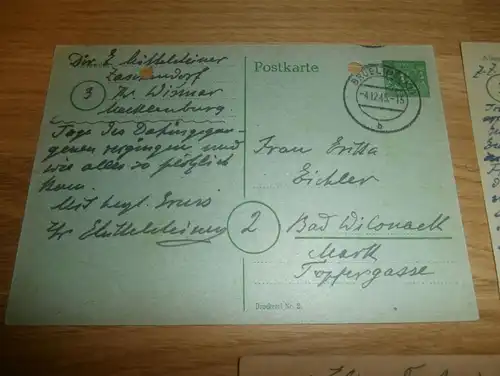 Dir. E. Mittelsteiner
Zaschendorf
③ Kr. Wismar
Mecklenburg
Tage des Dahingegan-
genen vergingen und
wie alles so plötzlich
kam.
Mit herzl. Gruss
Ihr
Postkarte
BRÜEL
-4.12.45-15
b
Frau Britta
Eichler
② Bad Wilsnack
Mark
Töpfergasse